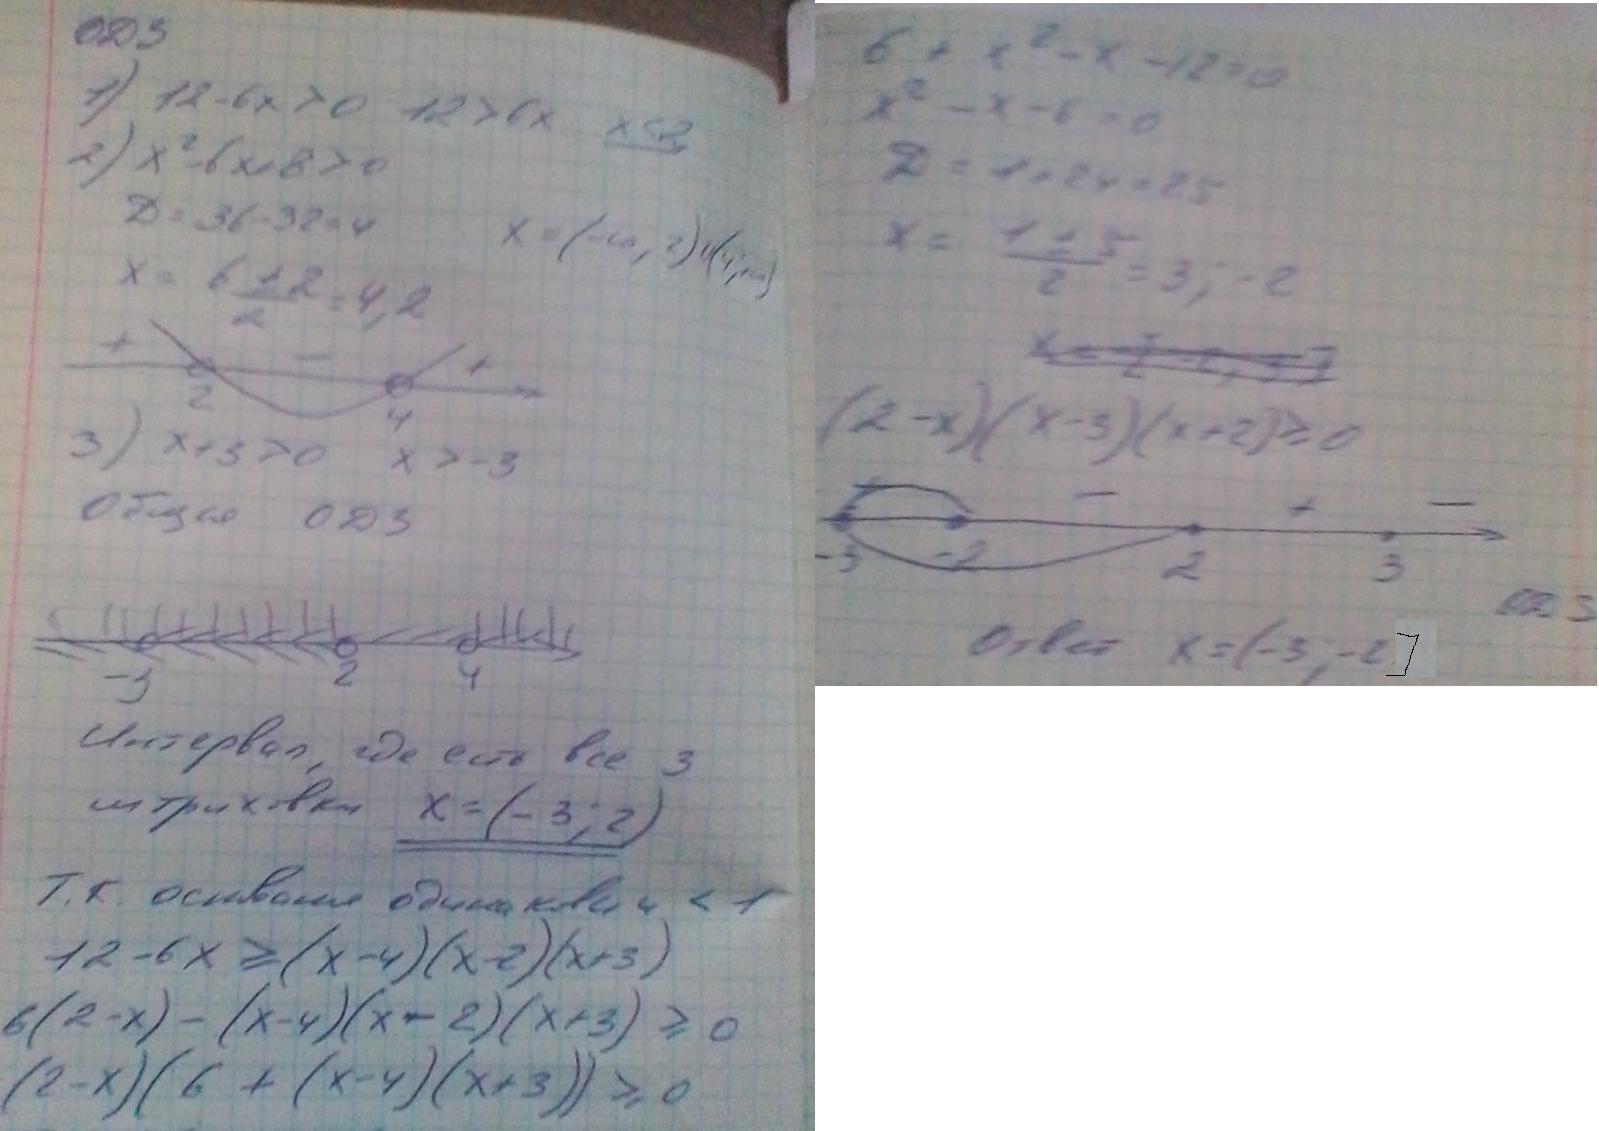 ОДЗ
1) 12-6x>0 12>6x x<2
2) x²-6x+8>0
D=36-32=4 x=(-∞, 2)u(4;+∞)
x= 6±2/2 =4,2
+ - +
2 4
3) x+3>0 x>-3
Общая ОДЗ
-3 2 4
Интервал, где есть все 3
штриховки x=(-3;2)
Т.к. основания одинаковы и <1
12-6x≥(x-4)(x-2)(x+3)
6(2-x)-(x-4)(x-2)(x+3)≥0
(2-x)(6+(x-4)(x+3))≥0
6+x²-x-12=0
x²-x-6=0
D=1+24=25
x= 1±5/2 =3;-2
(2-x)(x-3)(x+2)≥0
+ - + -
-3 -2 2 3
ОДЗ
Ответ x=(-3;-2]